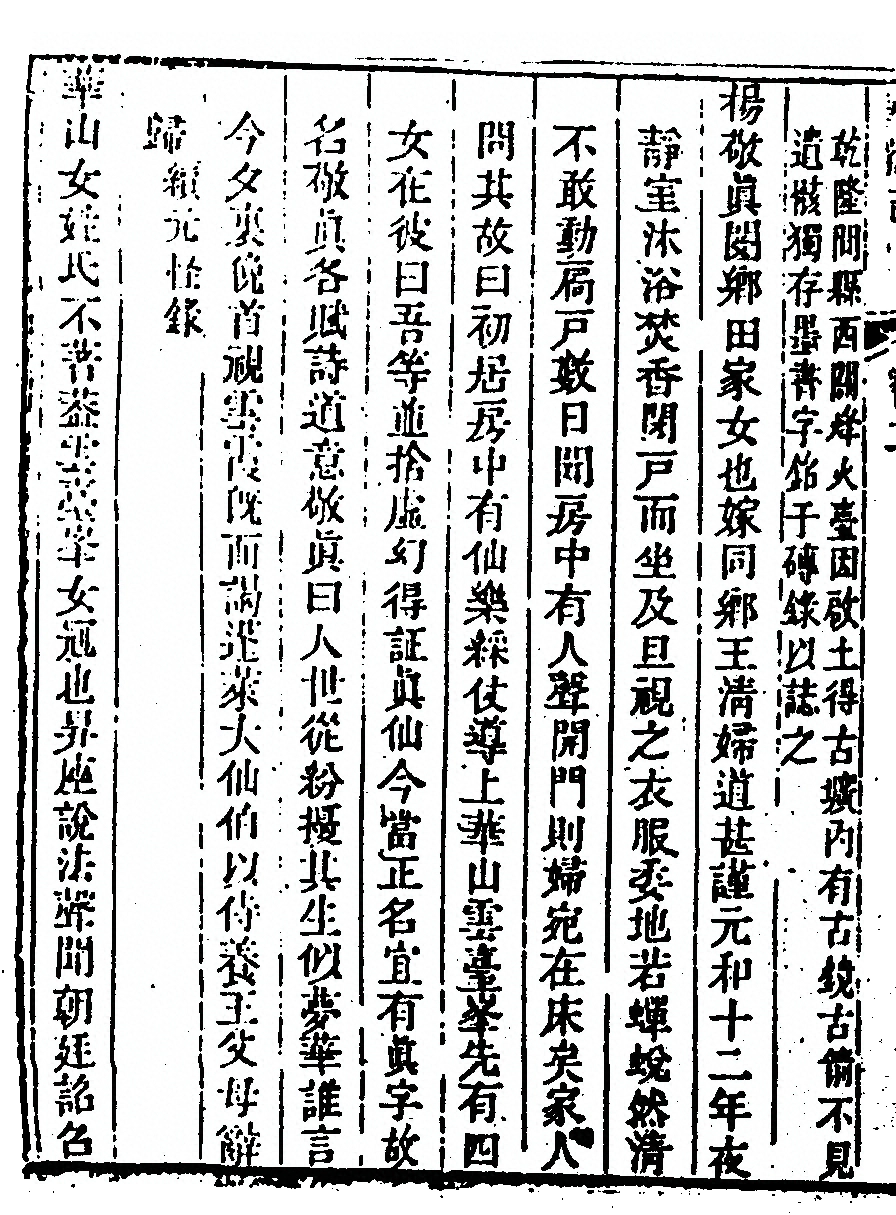 乾隆間縣西關烽火臺因啟土得古壙內有古鏡古備不見
遺骸獨存墨書字銘于磚錄以誌之
楊敬眞閿鄉田家女也嫁同鄉王清婦道甚謹元和十二年夜
靜室沐浴焚香閉戸而坐及旦視之衣服委地若蟬蛻然清
不敢動扃戸數日聞房中有人聲開門則婦宛在床矣家人
問其故曰初居房中有仙樂綵仗導上華山雲臺峯先有四
女在彼曰吾等並捨虛幻得証眞仙今當正名宜有眞字故
名敬眞各賦詩道意敬眞曰人世從紛擾其生似夢華誰言
今夕裏俛首視雲霞旣而謁蓬萊大仙伯以侍養王父母辭
歸續元怪錄
華山女姓氏不著葢雲臺峯女冠也昇座說法聲聞朝廷詔召